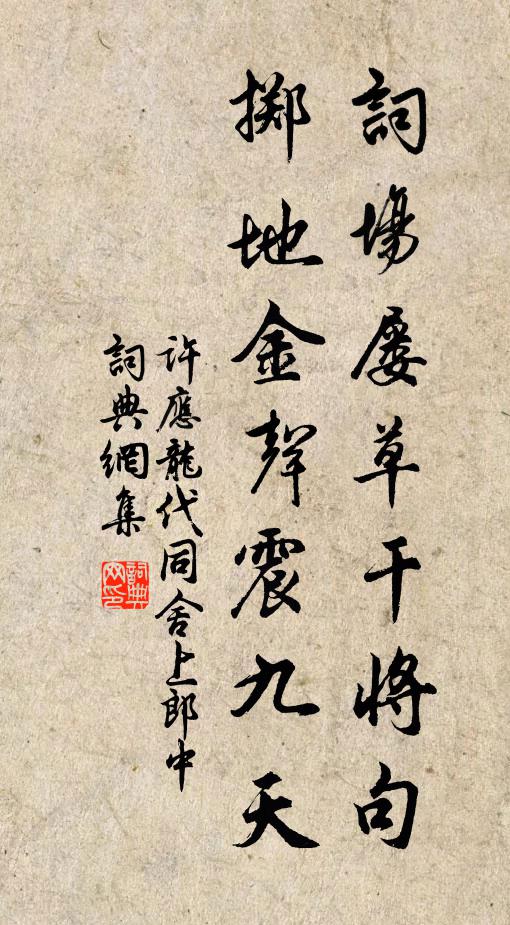 詞場屡草干將句
擲地金聲震九天
許應龍代同舍上郎中
詞典網集
詞典网印